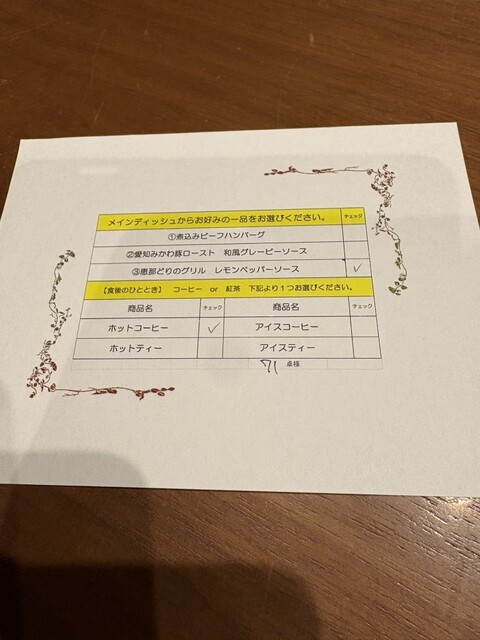 メインディッシュからお好みの一品をお選びください。 チェック
①煮込みビーフハンバーグ
②愛知みかわ豚ロースト 和風グレービーソース
③恵那どりのグリル レモンペッパーソース ✓
【食後のひととき】 コーヒー or 紅茶 下記より１つお選びください。
商品名 チェック 商品名 チェック
ホットコーヒー ✓ アイスコーヒー
ホットティー アイスティー
71 卓様